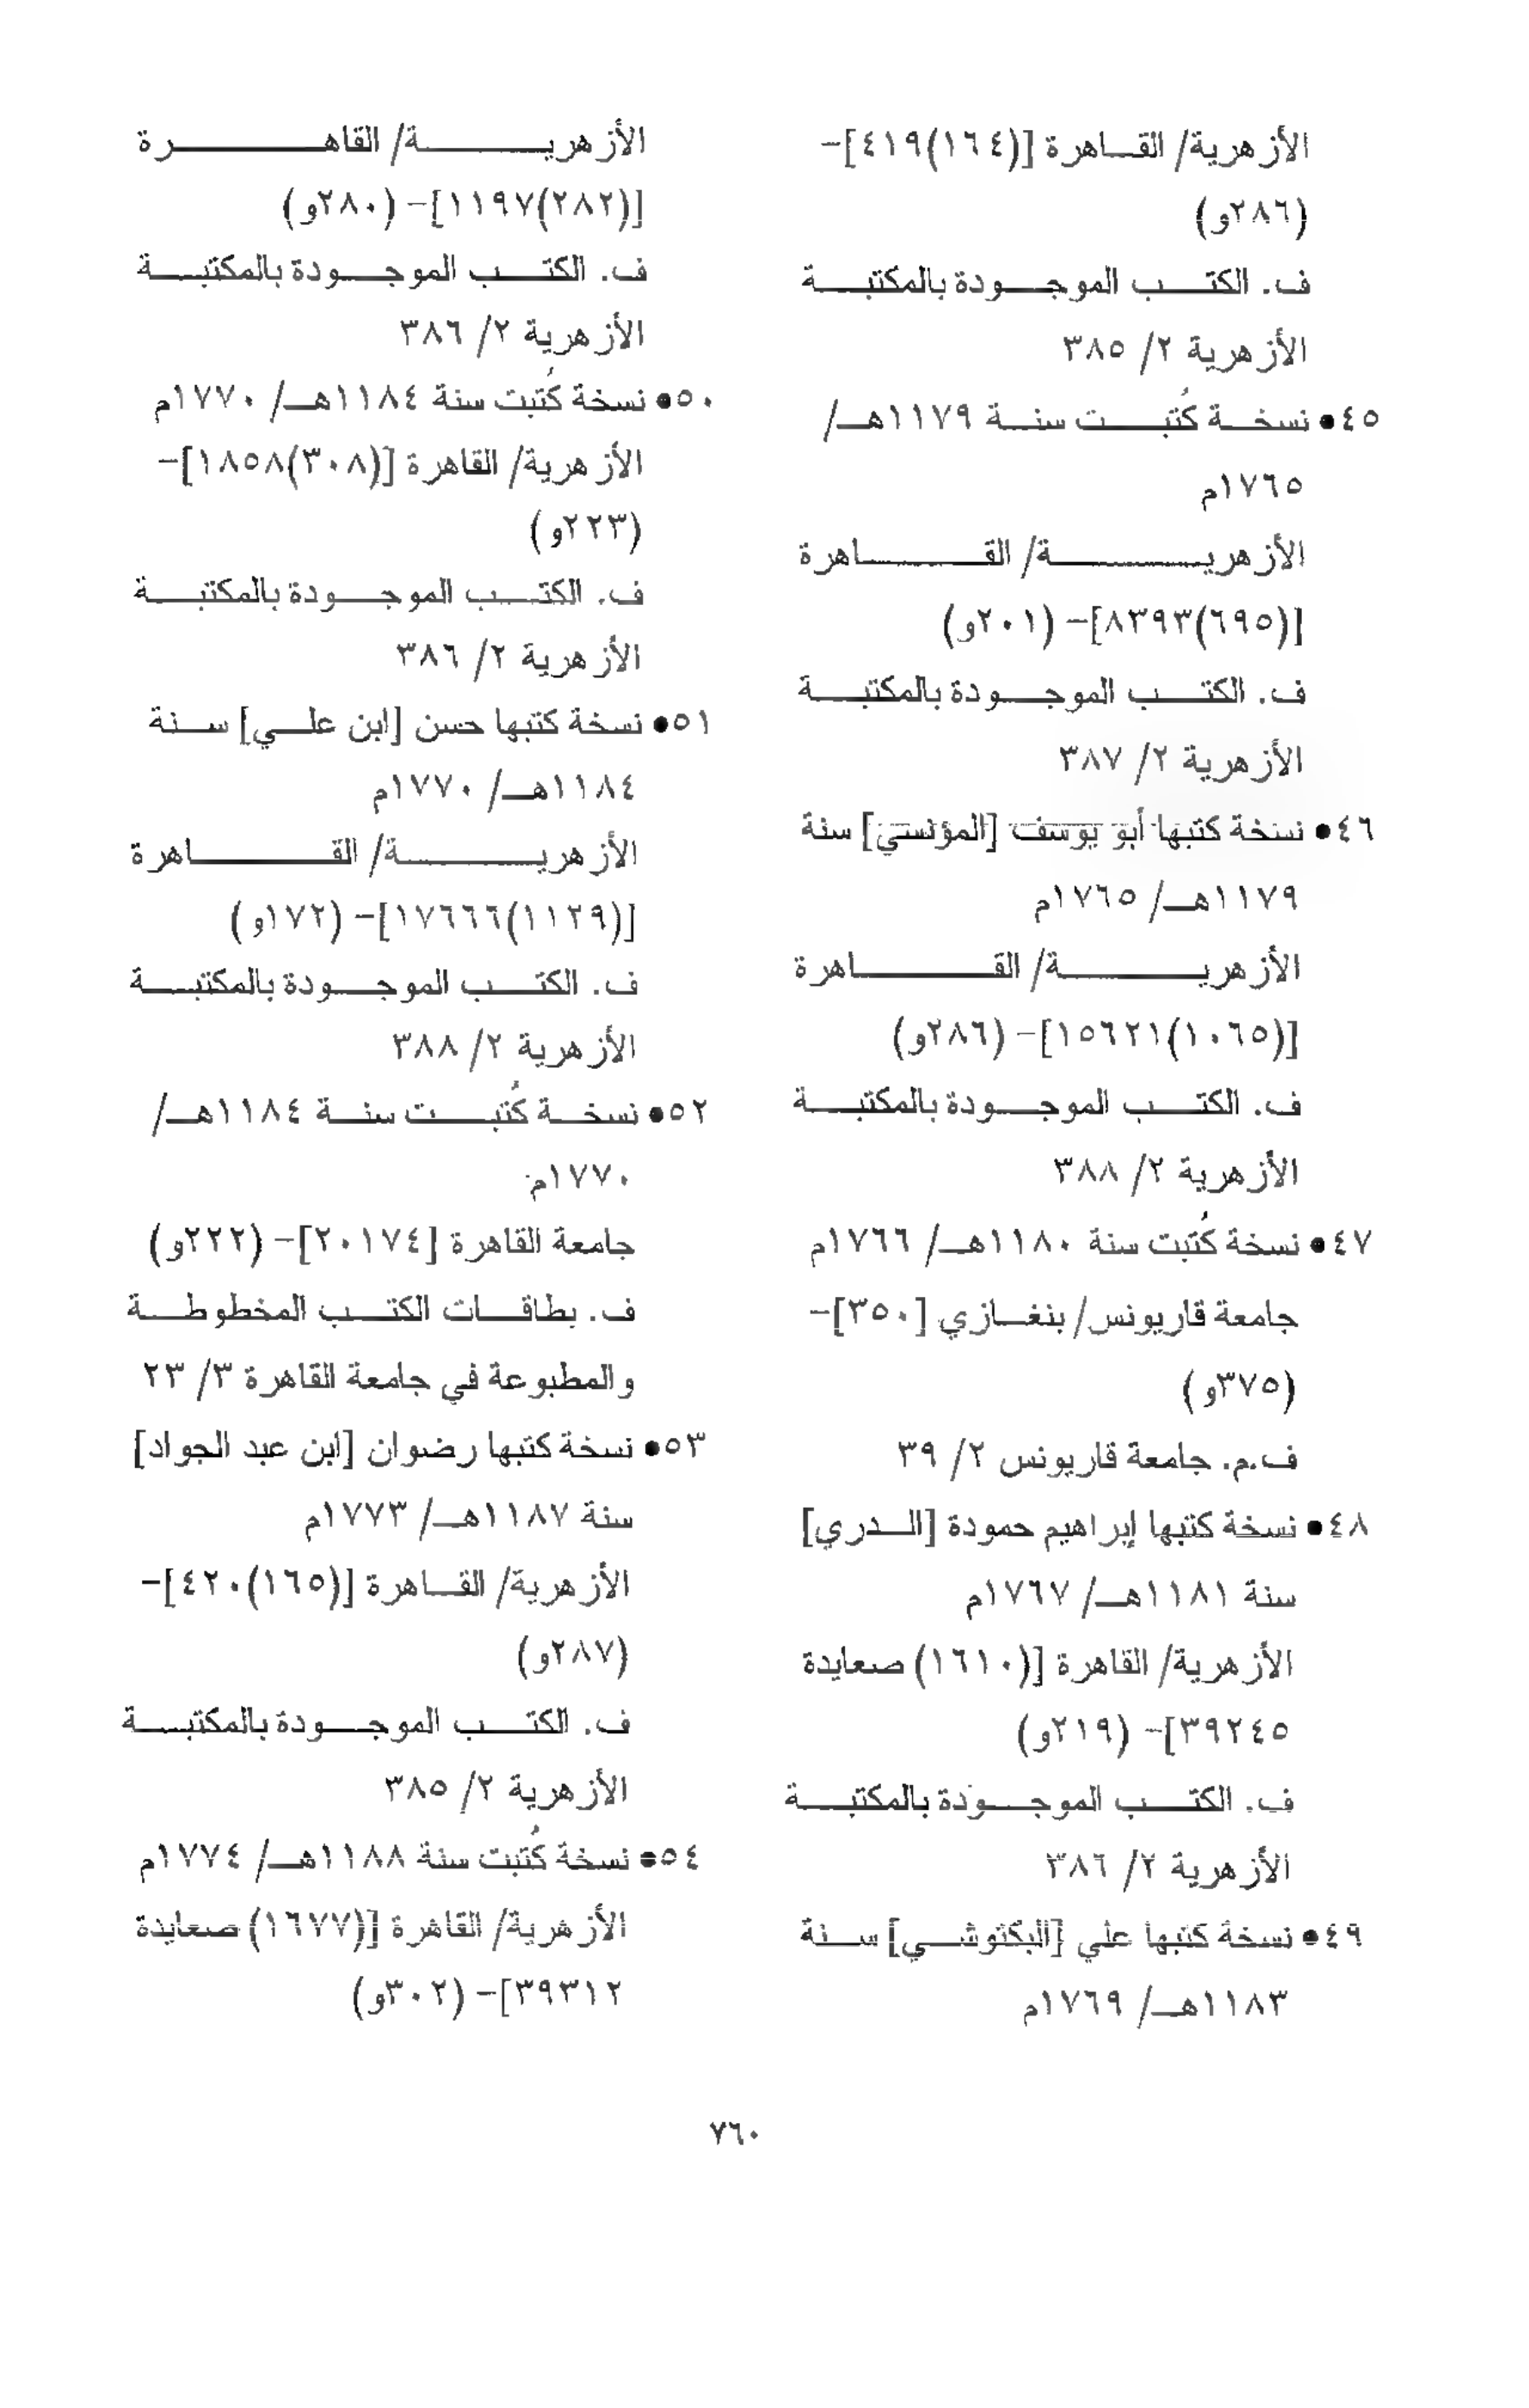 الأزهرية/ القاهرة [(١٦٤)٤١٩]-
(٢٨٦و)
ف. الكتب الموجودة بالمكتبة
الأزهرية ٢/ ٣٨٥
٤٥• نسخة كُتبت سنة ١١٧٩هـ/
١٧٦٥م
الأزهرية/ القاهرة
[(٦٩٥)٨٣٩٣]- (٢٠١و)
ف. الكتب الموجودة بالمكتبة
الأزهرية ٢/ ٣٨٧
٤٦• نسخة كتبها أبو يوسف [المؤنسي] سنة
١١٧٩هـ/ ١٧٦٥م
الأزهرية/ القاهرة
[(١٠٦٥)١٥٦٢١]- (٢٨٦و)
ف. الكتب الموجودة بالمكتبة
الأزهرية ٢/ ٣٨٨
٤٧• نسخة كُتبت سنة ١١٨٠هـ/ ١٧٦٦م
جامعة قاريونس/ بنغازي [٣٥٠]-
(٣٧٥و)
ف.م. جامعة قاريونس ٢/ ٣٩
٤٨• نسخة كتبها إبراهيم حمودة [الدري]
سنة ١١٨١هـ/ ١٧٦٧م
الأزهرية/ القاهرة [(١٦١٠) صعايدة
٣٩٢٤٥]- (٢١٩و)
ف. الكتب الموجودة بالمكتبة
الأزهرية ٢/ ٣٨٦
٤٩• نسخة كتبها علي [البكتوشي] سنة
١١٨٣هـ/ ١٧٦٩م
الأزهرية/ القاهرة
[(٢٨٢)١١٩٧]- (٢٨٠و)
ف. الكتب الموجودة بالمكتبة
الأزهرية ٢/ ٣٨٦
٥٠• نسخة كُتبت سنة ١١٨٤هـ/ ١٧٧٠م
الأزهرية/ القاهرة [(٣٠٨)١٨٥٨]-
(٢٢٣و)
ف. الكتب الموجودة بالمكتبة
الأزهرية ٢/ ٣٨٦
٥١• نسخة كتبها حسن [ابن علي] سنة
١١٨٤هـ/ ١٧٧٠م
الأزهرية/ القاهرة
[(١١٢٩)١٧٦٦٦]- (١٧٢و)
ف. الكتب الموجودة بالمكتبة
الأزهرية ٢/ ٣٨٨
٥٢• نسخة كُتبت سنة ١١٨٤هـ/
١٧٧٠م
جامعة القاهرة [٢٠١٧٤]- (٢٢٢و)
ف. بطاقات الكتب المخطوطة
والمطبوعة في جامعة القاهرة ٣/ ٢٣
٥٣• نسخة كتبها رضوان [ابن عبد الجواد]
سنة ١١٨٧هـ/ ١٧٧٣م
الأزهرية/ القاهرة [(١٦٥)٤٢٠]-
(٢٨٧و)
ف. الكتب الموجودة بالمكتبة
الأزهرية ٢/ ٣٨٥
٥٤• نسخة كُتبت سنة ١١٨٨هـ/ ١٧٧٤م
الأزهرية/ القاهرة [(١٦٧٧) صعايدة
٣٩٣١٢]- (٣٠٢و)
٧٦٠